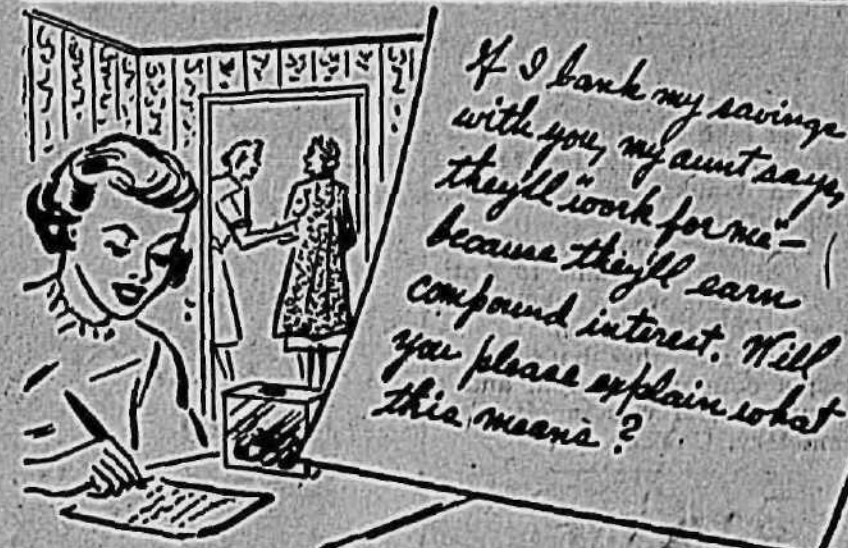 If I bank my savings
with you, my aunt says,
they'll "work for me" –
because they'll earn
compound interest. Will
you please explain what
this means?